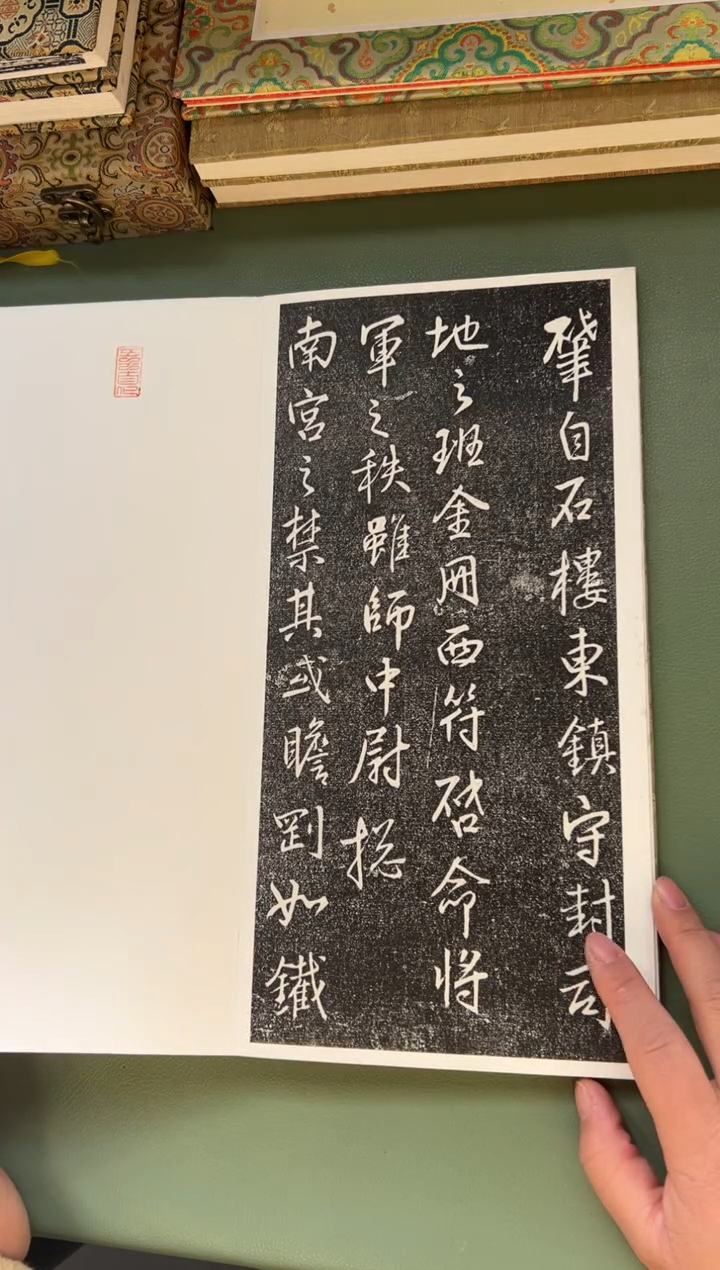 肇自石樓東鎮守封司
地之班金冊西符啓命將
軍之秩雖師中尉揔
南宮之禁其或瞻劉如鐵